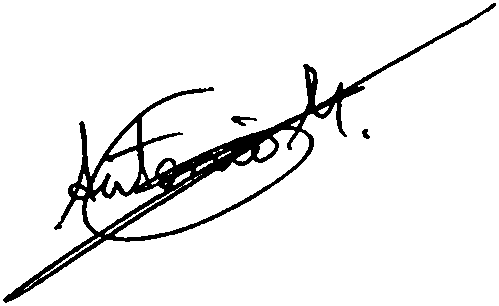 Antonio M.